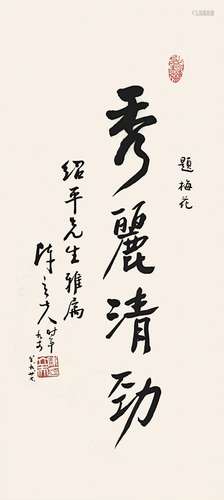 題梅花
秀麗清勁
紹平先生雅屬
陳立夫時年九十